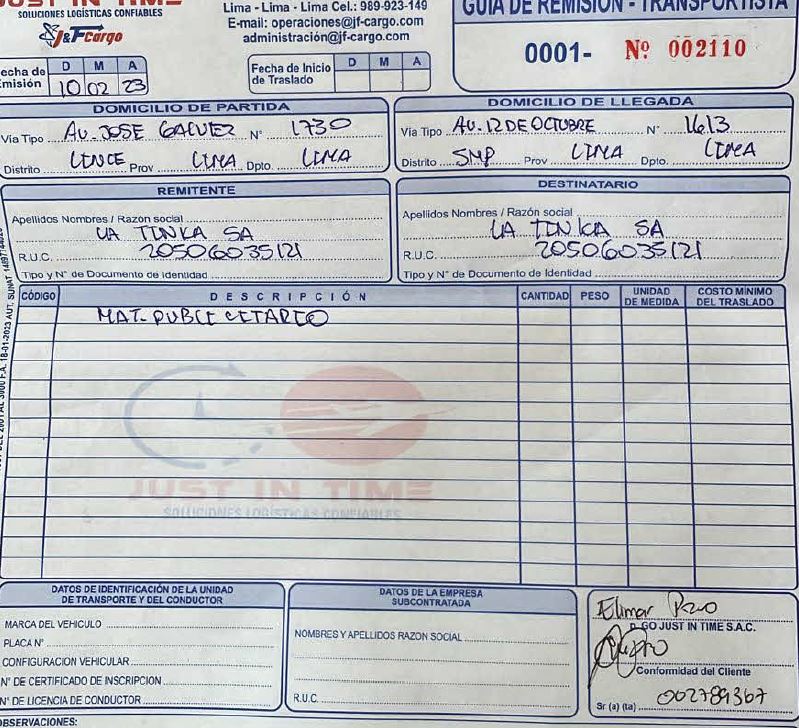 JUST IN TIME
SOLUCIONES LOGÍSTICAS CONFIABLES
J&F Cargo
Lima - Lima - Lima Cel.: 989-923-149
E-mail: operaciones@jf-cargo.com
administración@jf-cargo.com
GUIA DE REMISIÓN - TRANSPORTISTA
0001- Nº 002110
echa de Emisión D M A
10 02 23
Fecha de Inicio de Traslado D M A
DOMICILIO DE PARTIDA
Via Tipo AV. JOSE GALVEZ N° 1730
Distrito LINCE Prov LIMA Dpto. LIMA
DOMICILIO DE LLEGADA
Via Tipo AV. 12 DE OCTUBRE N° 1613
Distrito SMP Prov LIMA Dpto. LIMA
REMITENTE
Apellidos Nombres / Razón social
LA TINKA SA
R.U.C. 20506035121
Tipo y N° de Documento de Identidad
DESTINATARIO
Apellidos Nombres / Razón social
LA TINKA SA
R.U.C. 20506035121
Tipo y N° de Documento de Identidad
CÓDIGO DESCRIPCIÓN CANTIDAD PESO UNIDAD DE MEDIDA COSTO MÍNIMO DEL TRASLADO
MAT. PUBLICITARIO
JUST IN TIME
SOLUCIONES LOGÍSTICAS CONFIABLES
DATOS DE IDENTIFICACIÓN DE LA UNIDAD
DE TRANSPORTE Y DEL CONDUCTOR
MARCA DEL VEHICULO
PLACA N°
CONFIGURACION VEHICULAR
N° DE CERTIFICADO DE INSCRIPCION
N° DE LICENCIA DE CONDUCTOR
DATOS DE LA EMPRESA
SUBCONTRATADA
NOMBRES Y APELLIDOS RAZON SOCIAL
R.U.C.
Elimar
GO JUST IN TIME S.A.C.
Conformidad del Cliente
002789367
Sr (a) (ta)
OBSERVACIONES: